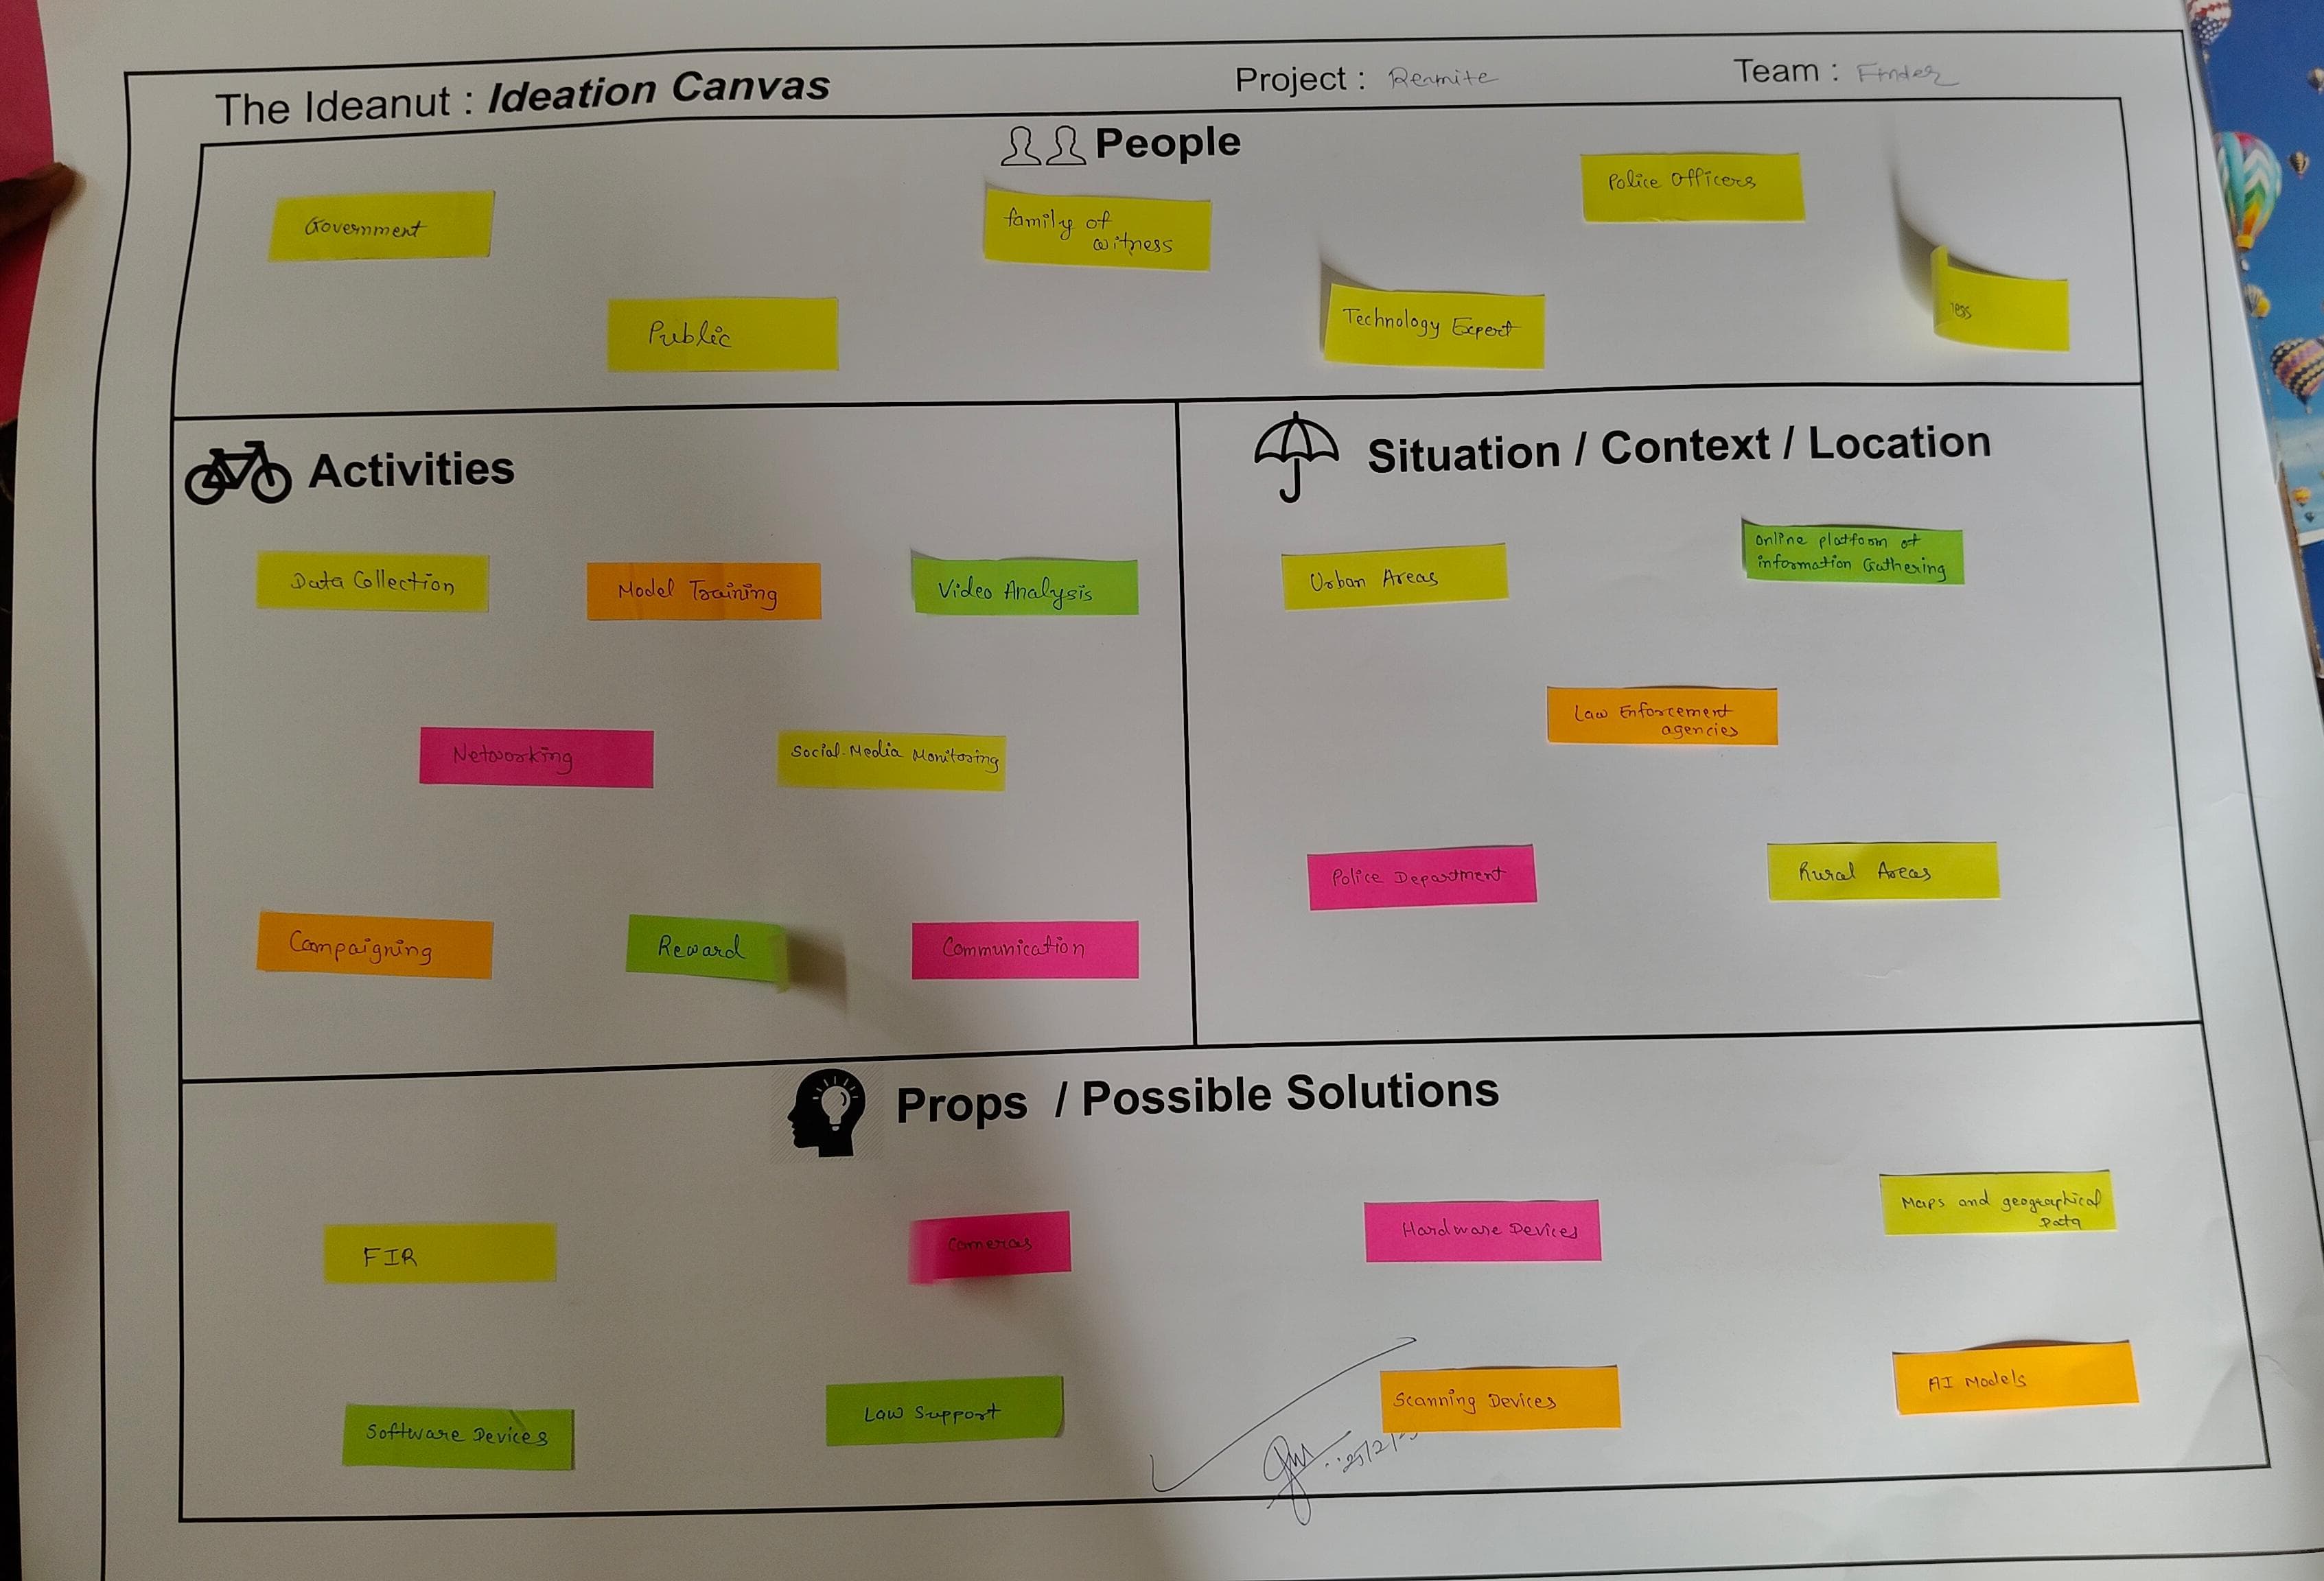 The Ideanut : Ideation Canvas
Project : Reunite
Team : Finder
People
Government
Public
family of
witness
Technology Expert
Police Officers
ness
Activities
Data Collection
Model Training
Video Analysis
Networking
Social-Media Monitoring
Campaigning
Reward
Communication
Situation / Context / Location
Urban Areas
online platform of
information Gathering
Law Enforcement
agencies
Police Department
Rural Areas
Props / Possible Solutions
FIR
Cameras
Hardware Devices
Maps and geographical
Data
Software Devices
Law Support
Scanning Devices
AI Models